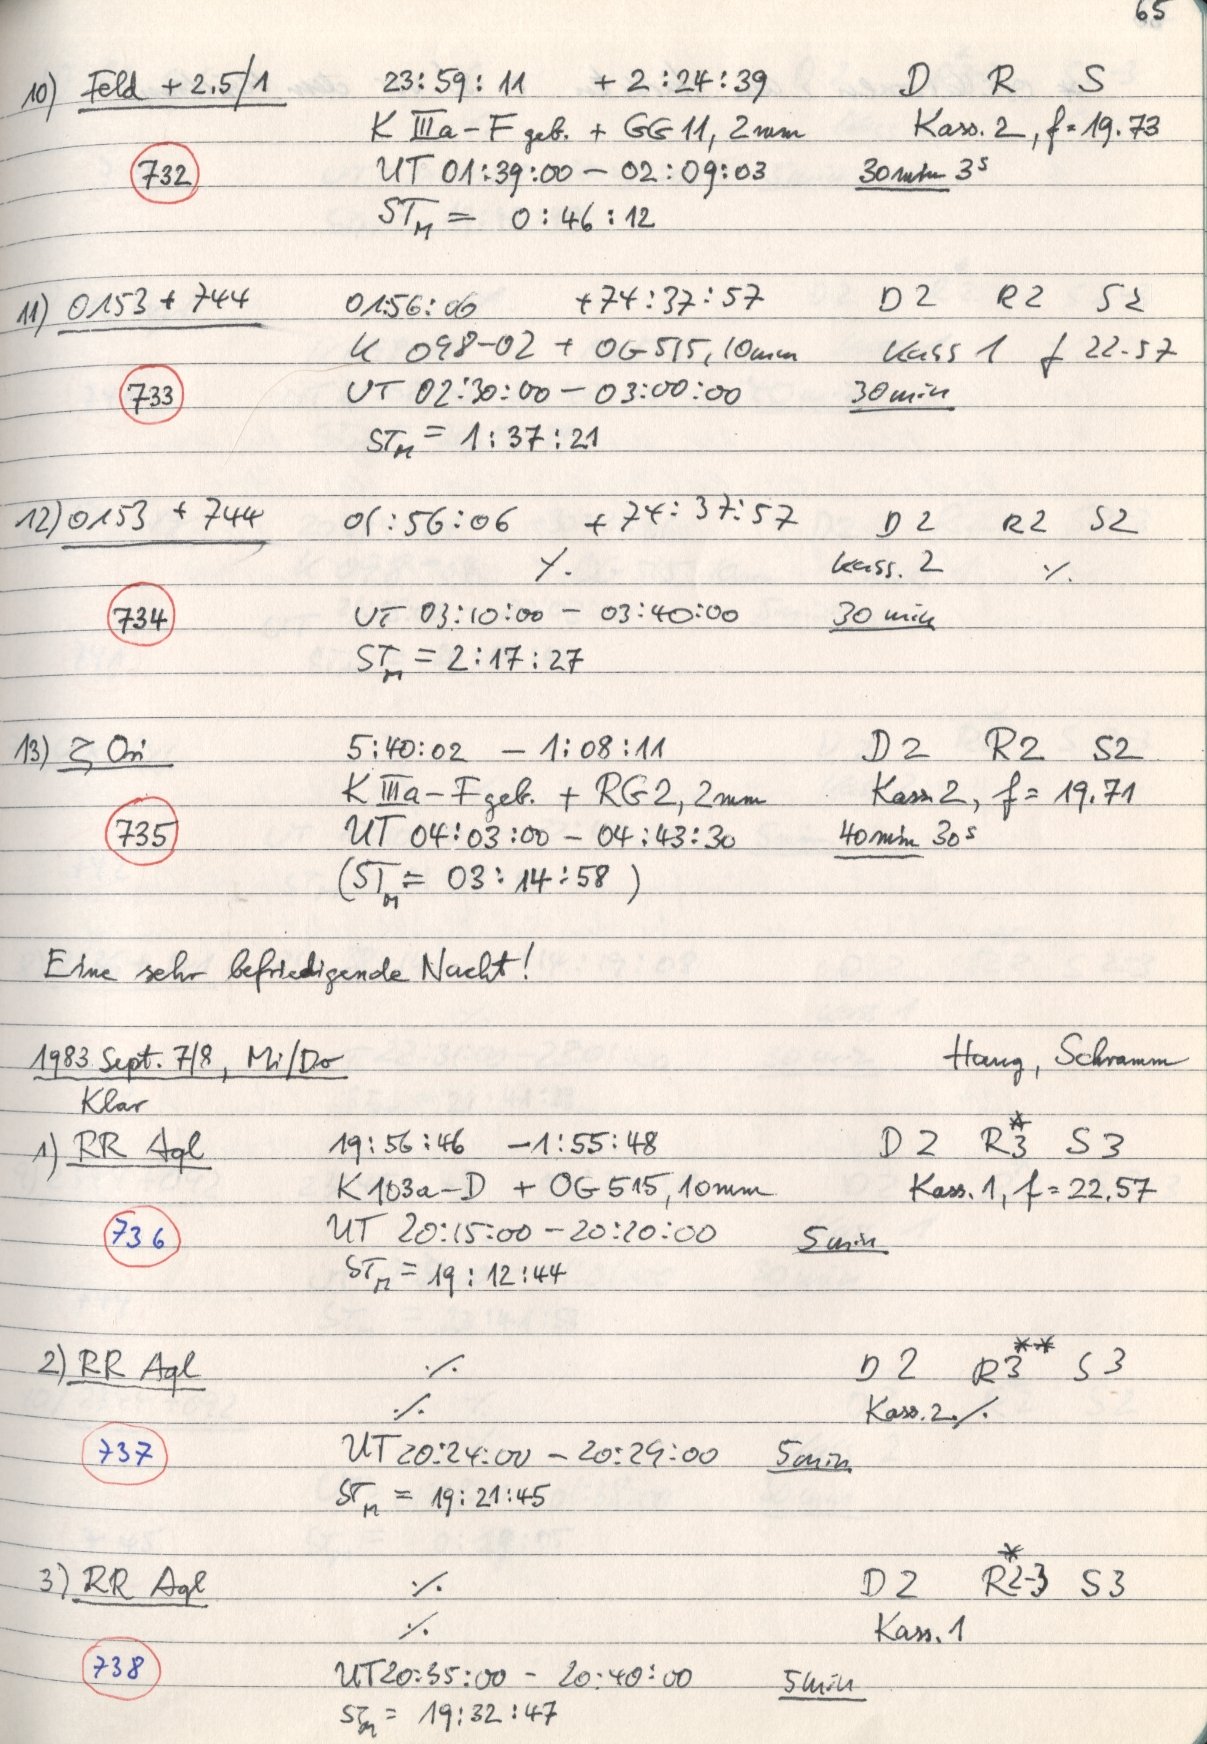 65
10) Feld + 2.5/1 23:59:11 + 2:24:39 D R S
K IIIa-F geb. + GG11, 2mm Kass. 2, f=19.73
732 UT 01:39:00 - 02:09:03 30min 3s
STM = 0:46:12
11) 0153 + 744 01:56:06 +74:37:57 D2 R2 S2
K 098-02 + OG515, 10mm Kass 1 f 22.57
733 UT 02:30:00 - 03:00:00 30min
STM = 1:37:21
12) 0153 + 744 01:56:06 +74:37:57 D2 R2 S2
⁒ Kass. 2 ⁒
734 UT 03:10:00 - 03:40:00 30 min
STM = 2:17:27
13) ζ Ori 5:40:02 - 1:08:11 D2 R2 S2
K IIIa-F geb. + RG2, 2mm Kass. 2, f=19.71
735 UT 04:03:00 - 04:43:30 40min 30s
(STM = 03:14:58)
Eine sehr befriedigende Nacht!
1983 Sept. 7/8, Mi/Do Haug, Schramm
Klar
1) RR Aql 19:56:46 -1:55:48 D2 R3* S3
K 103a-D + OG515, 10mm Kass. 1, f=22.57
736 UT 20:15:00 - 20:20:00 5min
STM = 19:12:44
2) RR Aql ⁒ D2 R3** S3
⁒ Kass. 2 ⁒
737 UT 20:24:00 - 20:29:00 5min
STM = 19:21:45
3) RR Aql ⁒ D2 R2-3* S3
⁒ Kass. 1
738 UT 20:35:00 - 20:40:00 5min
STM = 19:32:47